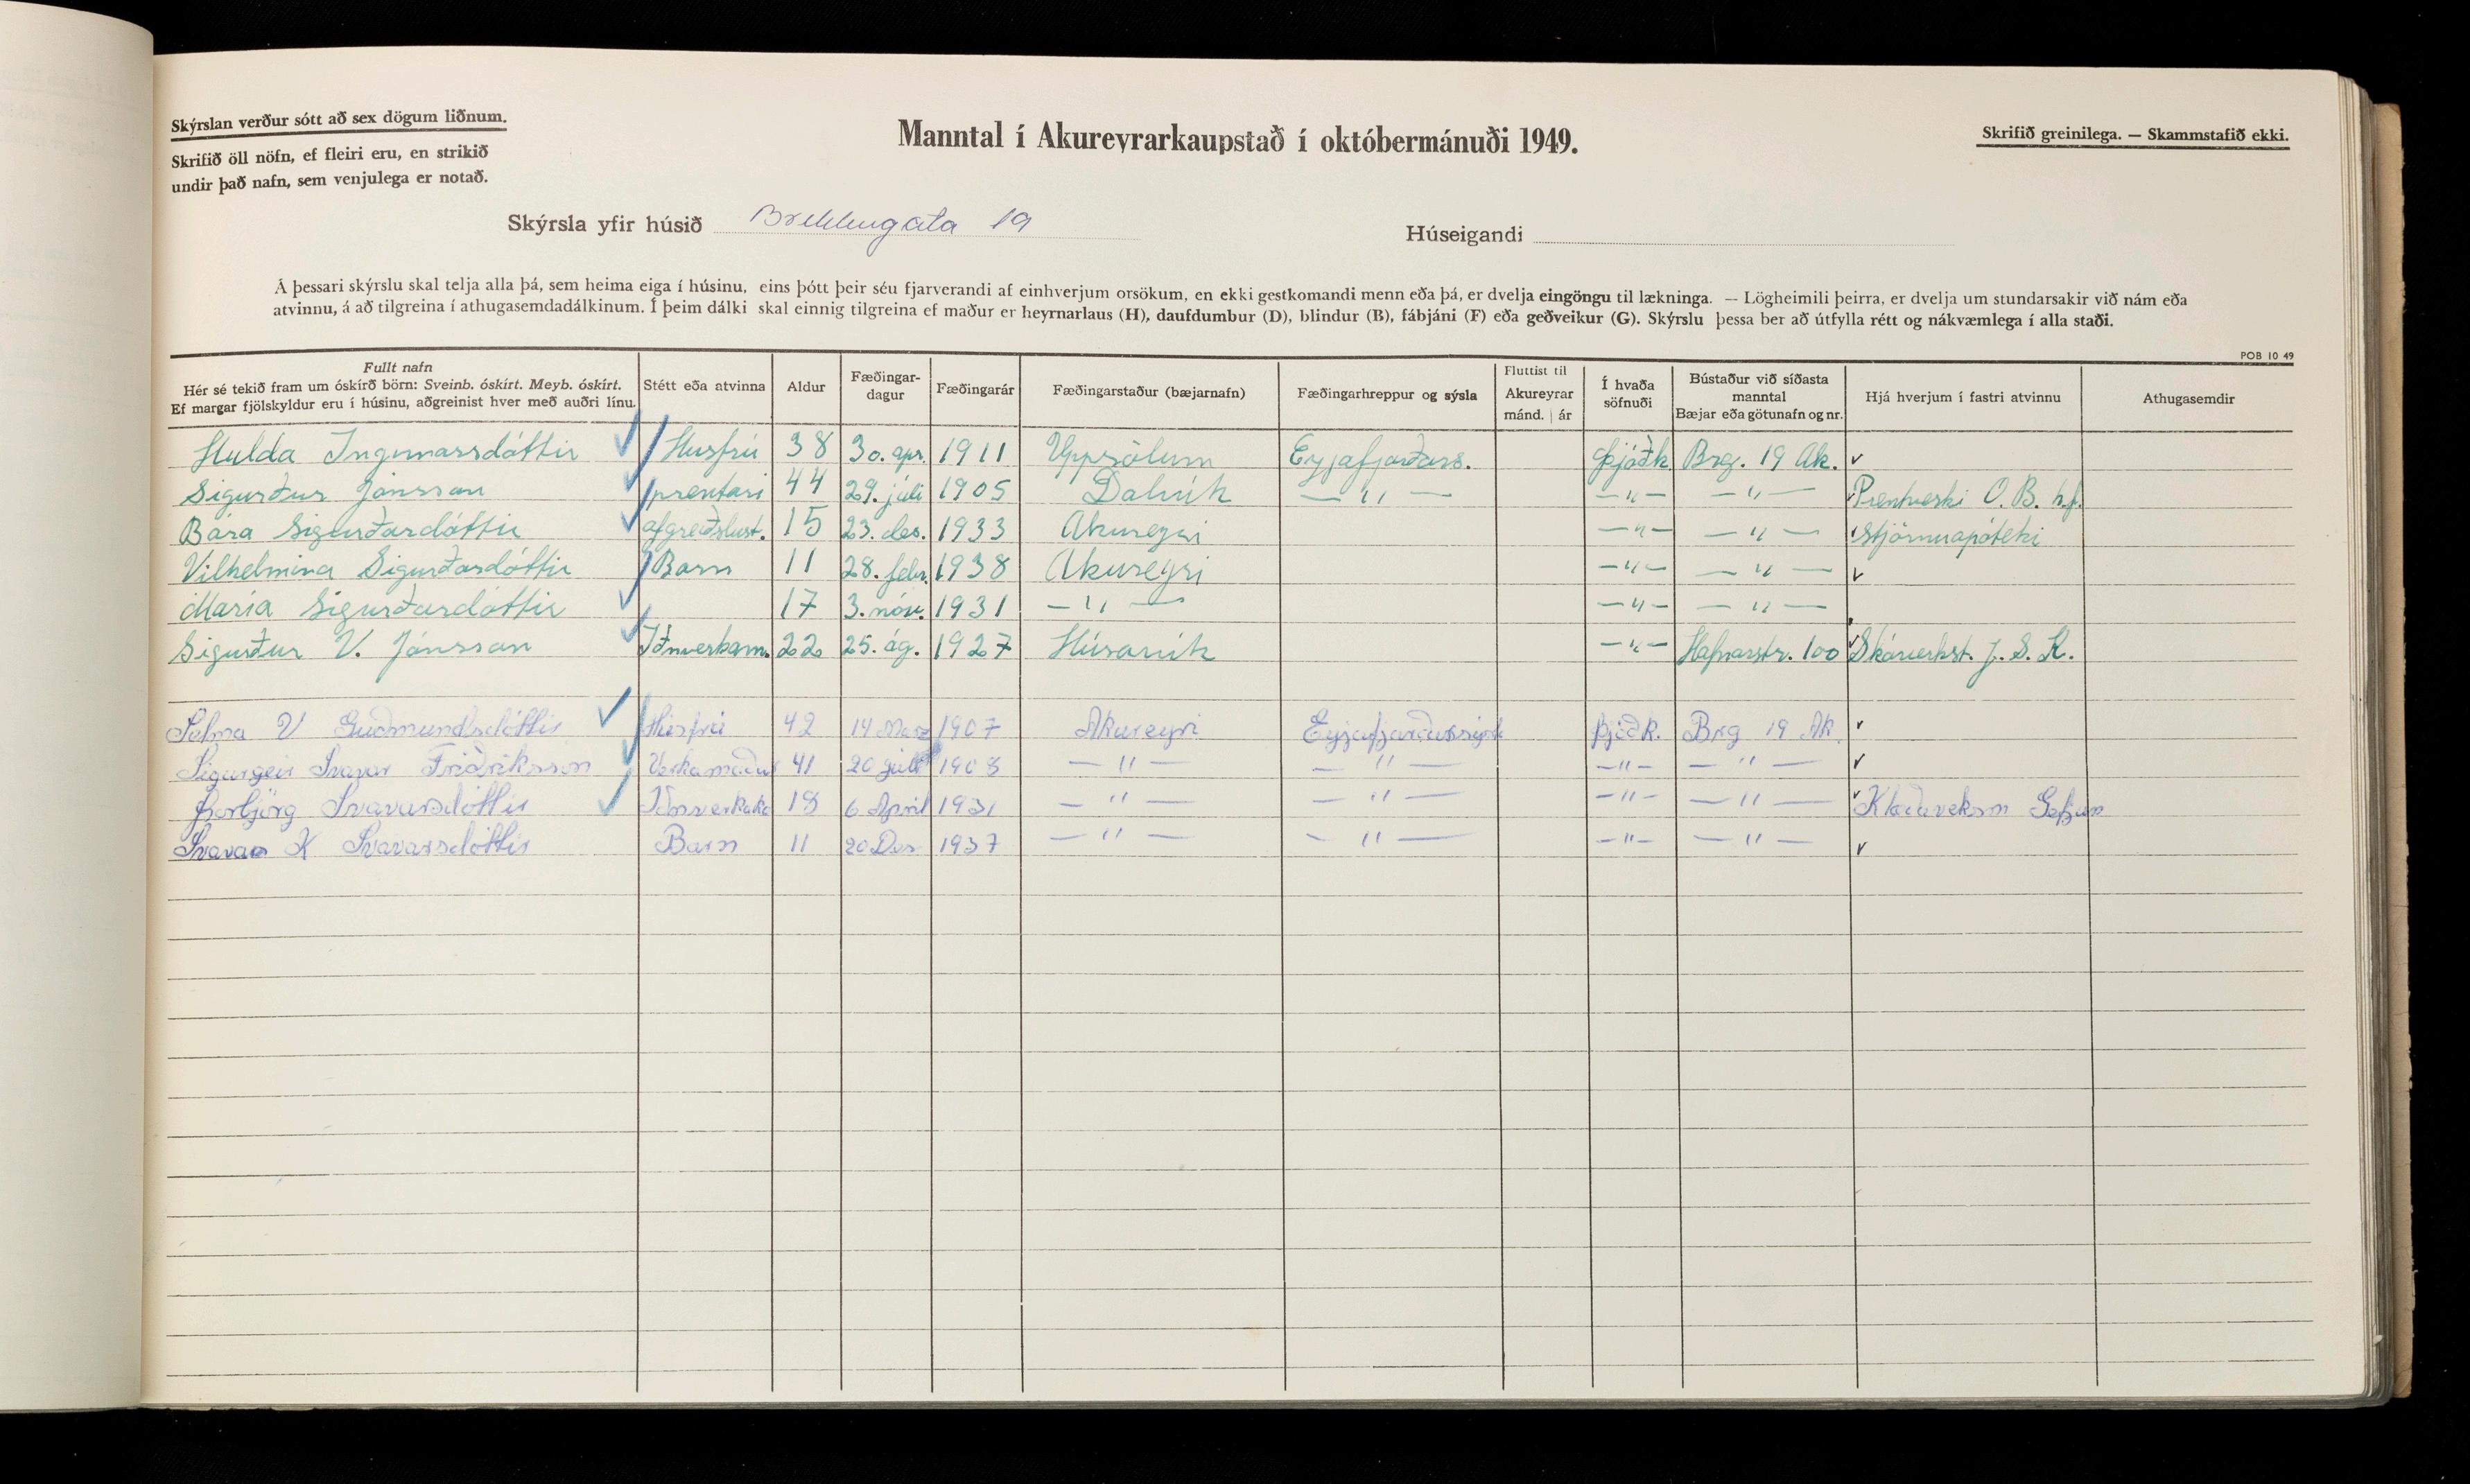 Skýrslan verður sótt að sex dögum liðnum.
Skrifið öll nöfn, ef fleiri eru, en strikið
undir það nafn, sem venjulega er notað.
Manntal í Akureyrarkaupstað í októbermánuði 1949.
Skrifið greinilega. — Skammstafið ekki.
Skýrsla yfir húsið Brekkugata 19
Húseigandi
Á þessari skýrslu skal telja alla þá, sem heima eiga í húsinu, eins þótt þeir séu fjarverandi af einhverjum orsökum, en ekki gestkomandi menn eða þá, er dvelja eingöngu til lækninga. — Lögheimili þeirra, er dvelja um stundarsakir við nám eða
atvinnu, á að tilgreina í athugasemdadálkinum. Í þeim dálki skal einnig tilgreina ef maður er heyrnarlaus (H), daufdumbur (D), blindur (B), fábjáni (F) eða geðveikur (G). Skýrslu þessa ber að útfylla rétt og nákvæmlega í alla staði.
POB 10 49
Fullt nafn
Hér sé tekið fram um óskírð börn: Sveinb. óskírt. Meyb. óskírt.
Ef margar fjölskyldur eru í húsinu, aðgreinist hver með auðri línu.
Stétt eða atvinna
Aldur
Fæðingar-
dagur
Fæðingarár
Fæðingarstaður (bæjarnafn)
Fæðingarhreppur og sýsla
Fluttist til
Akureyrar
mánd. | ár
Í hvaða
söfnuði
Bústaður við síðasta
manntal
Bæjar eða götunafn og nr.
Hjá hverjum í fastri atvinnu
Athugasemdir
Hulda Ingimarsdóttir Húsfrú 38 30. apr. 1911 Uppsölum Eyjafjarðars. þjóðk Brg. 19 Ak.
Sigurður Jónsson prentari 44 29. júlí 1905 Dalvík — " — — " — — " — Prentverki O. B. h.f.
Bára Sigurðardóttir afgreiðslust. 15 23. des. 1933 Akureyri — " — — " — Stjörnuapóteki
Vilhelmína Sigurðardóttir Barn 11 28. febr. 1938 Akureyri — " — — " —
María Sigurðardóttir 17 3. nóv. 1931 — " — — " — — " —
Sigurður V. Jónsson Iðnverkam. 22 25. ág. 1927 Húsavík — " — Hafnarstr. 100 Skóverkst. J. S. K.
Selma V Guðmundsdóttir Húsfrú 42 14 Marz 1907 Akureyri Eyjafjarðarsýsla þjóðk. Brg 19 Ak
Sigurgeir Svavar Friðriksson Verkamaður 41 20 júlí 1908 — " — — " — — " — — " —
Þorbjörg Svavarsdóttir Iðnverkak 18 6 Apríl 1931 — " — — " — — " — — " — Klæðaverksm Gefjun
Svava K Svavarsdóttir Barn 11 20 Des 1937 — " — — " — — " — — " —